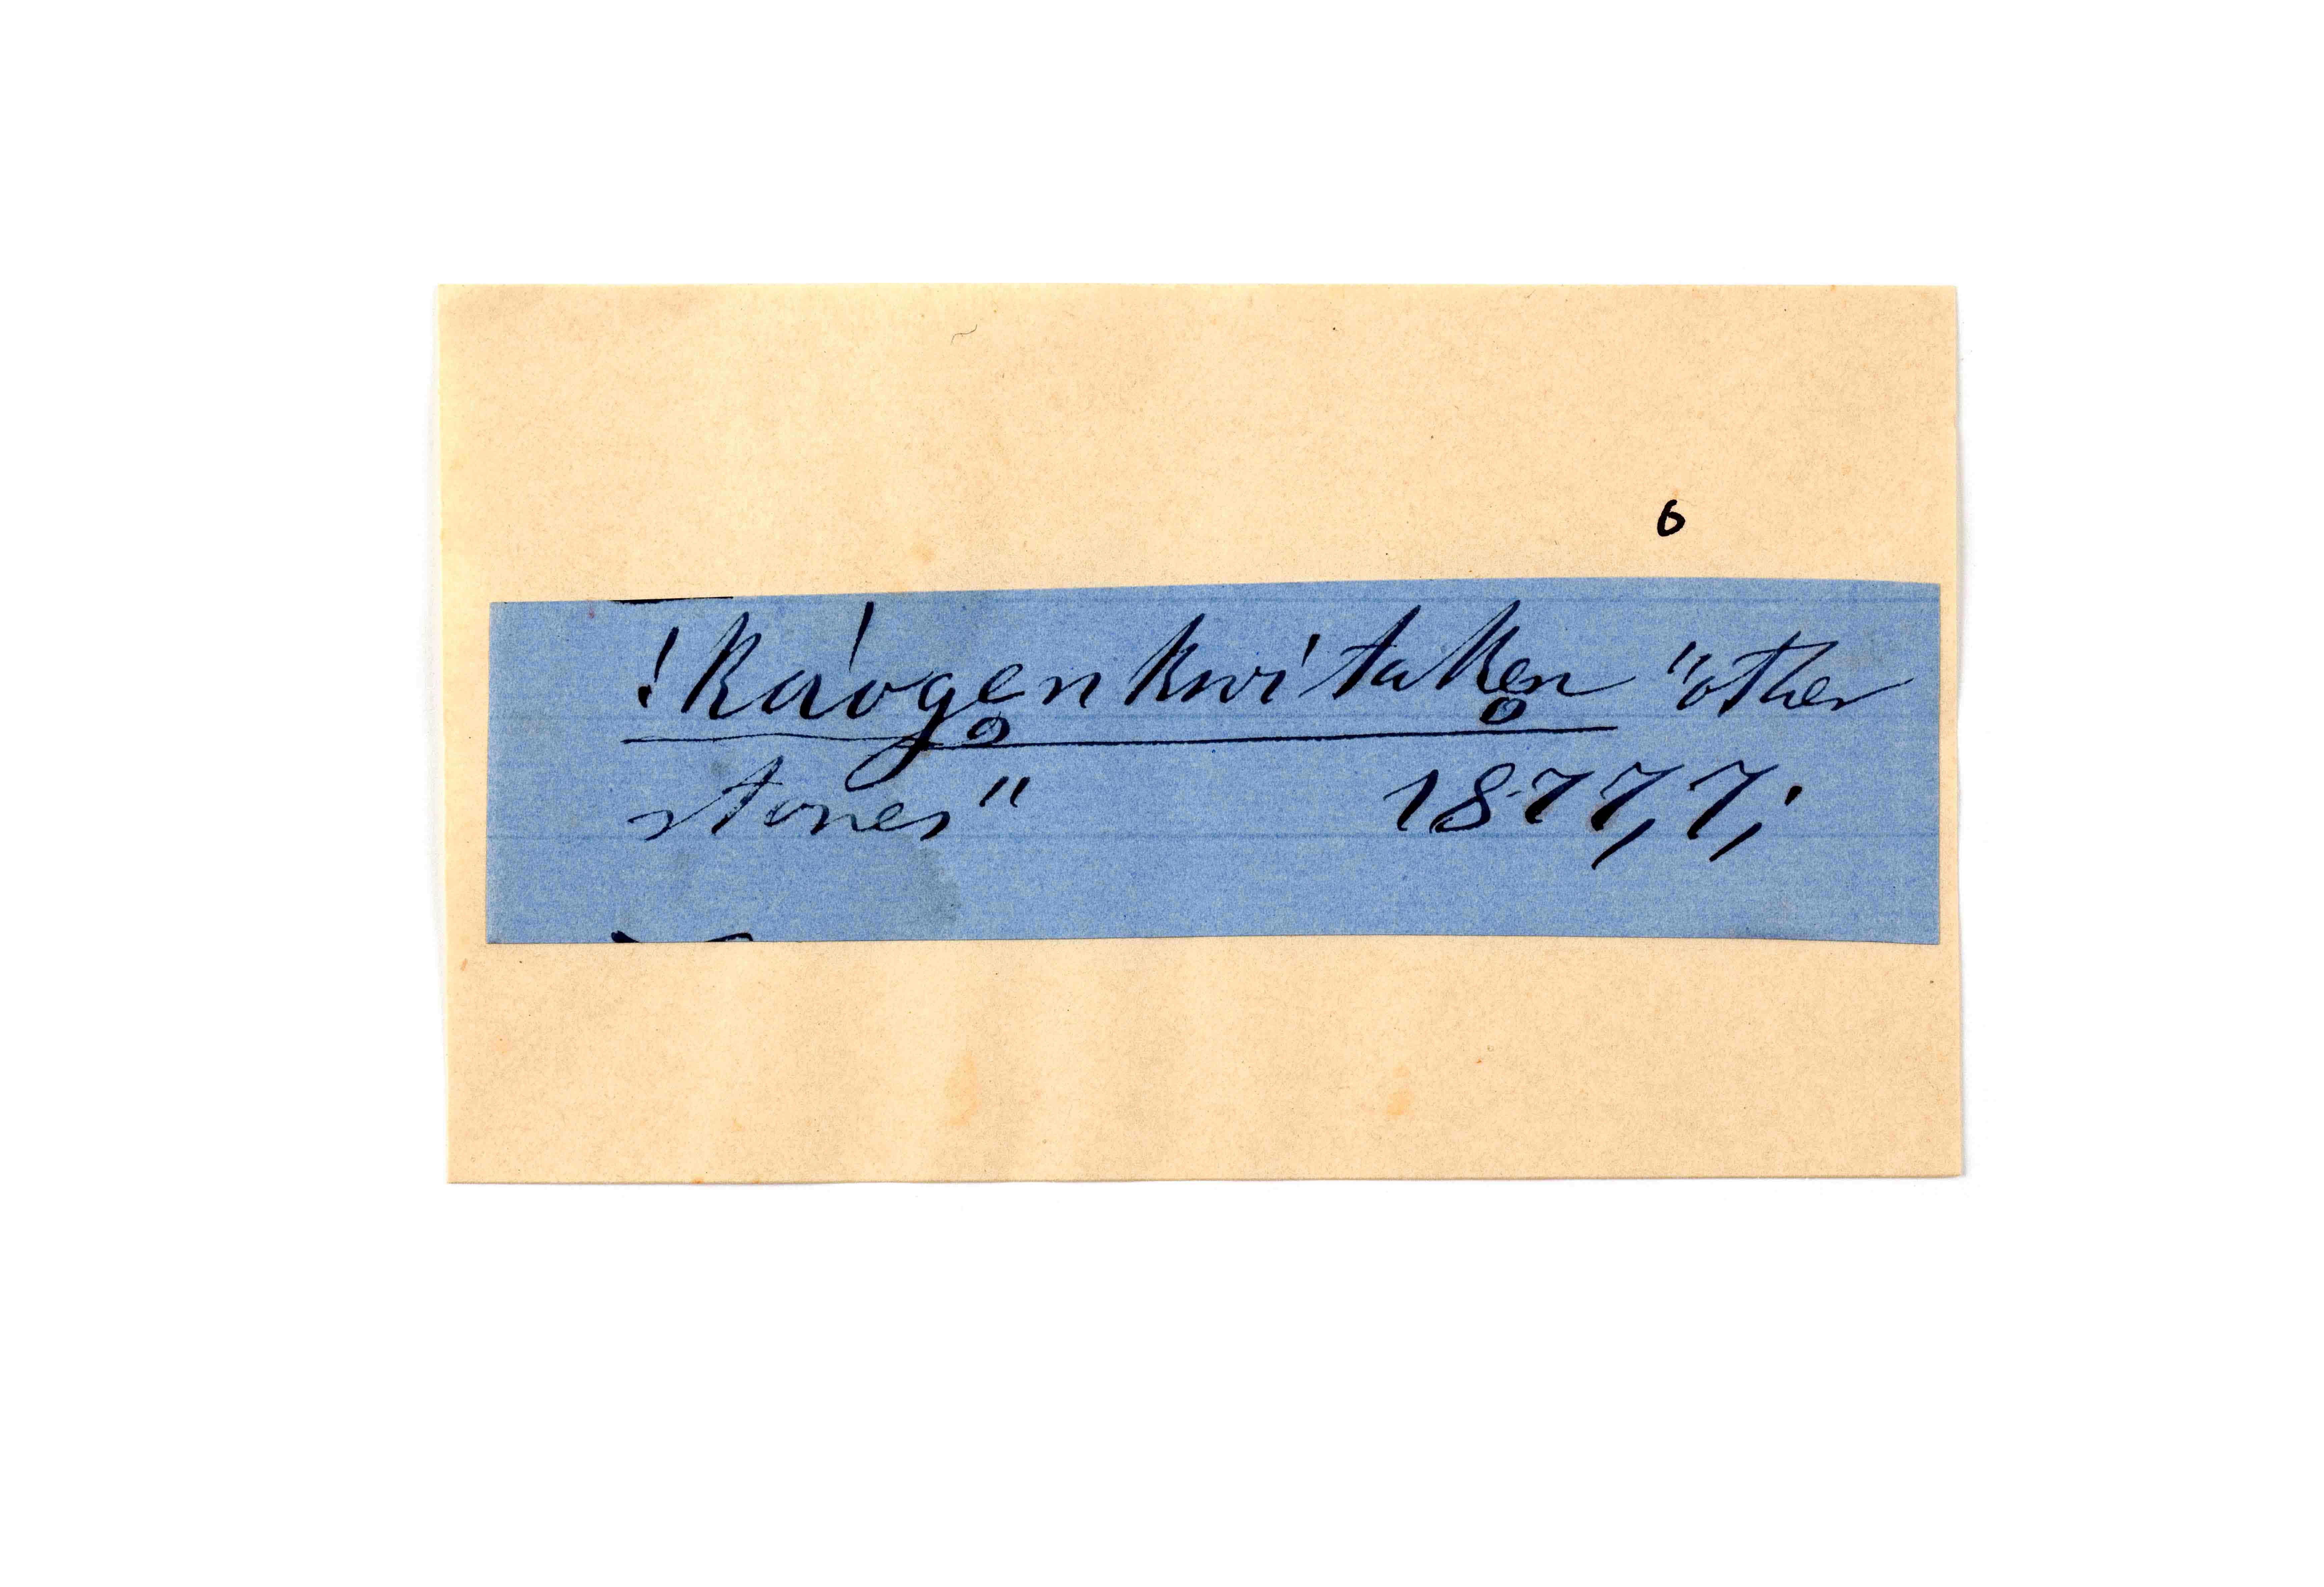 6
!káoge̥nkwi'take̥n "other
stones" 1877,7,'